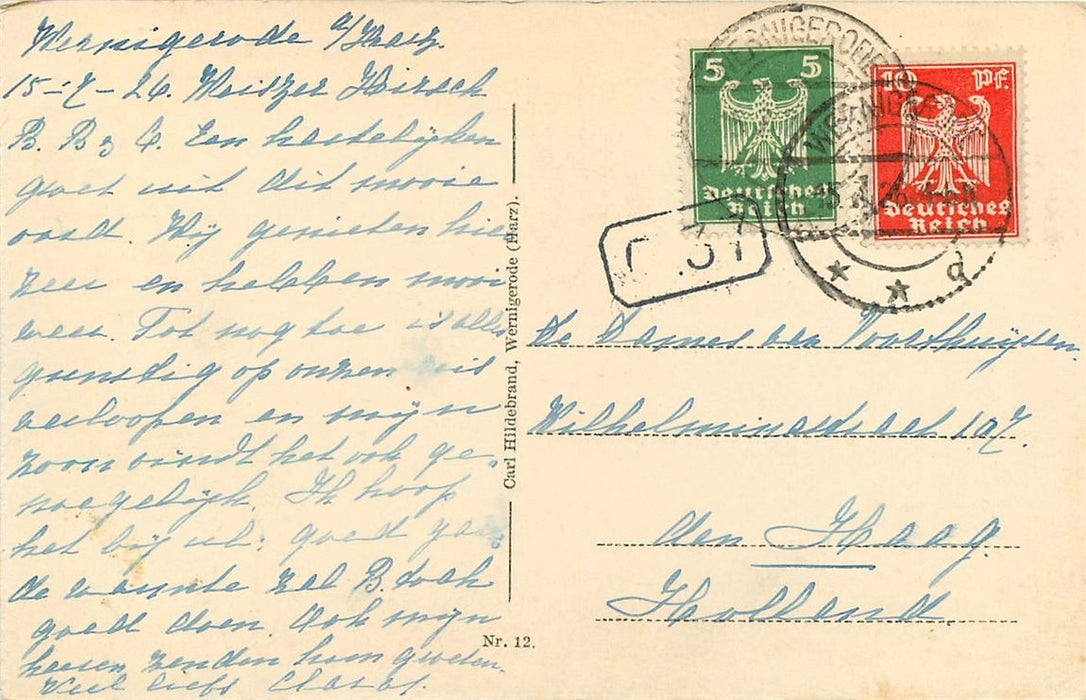 Wernigerode a/Harz.
15-7-26. Weiszer Hirsch
B. B z G. Een hartelijken
groet uit dit mooie
oord. Wij genieten hier
zeer en hebben mooi
weer. Tot nog toe is alles
gunstig op onzen reis
verloopen en mijn
zoon vindt het ook ge-
noegelijk. Ik hoop
het bij ul. goed gaat
de warmte zal B. toch
goed doen. Ook mijn
heeren zenden hun groeten.
Veel liefs
Carl Hildebrand, Wernigerode (Harz).
Nr. 12.
WERNIGERODE
5 5
Deutsches
Reich
10 Pf.
Deutsches
Reich
15.7.26
* * d
De Dames van Voorthuijsen
Wilhelminastraat 107.
den Haag.
Holland